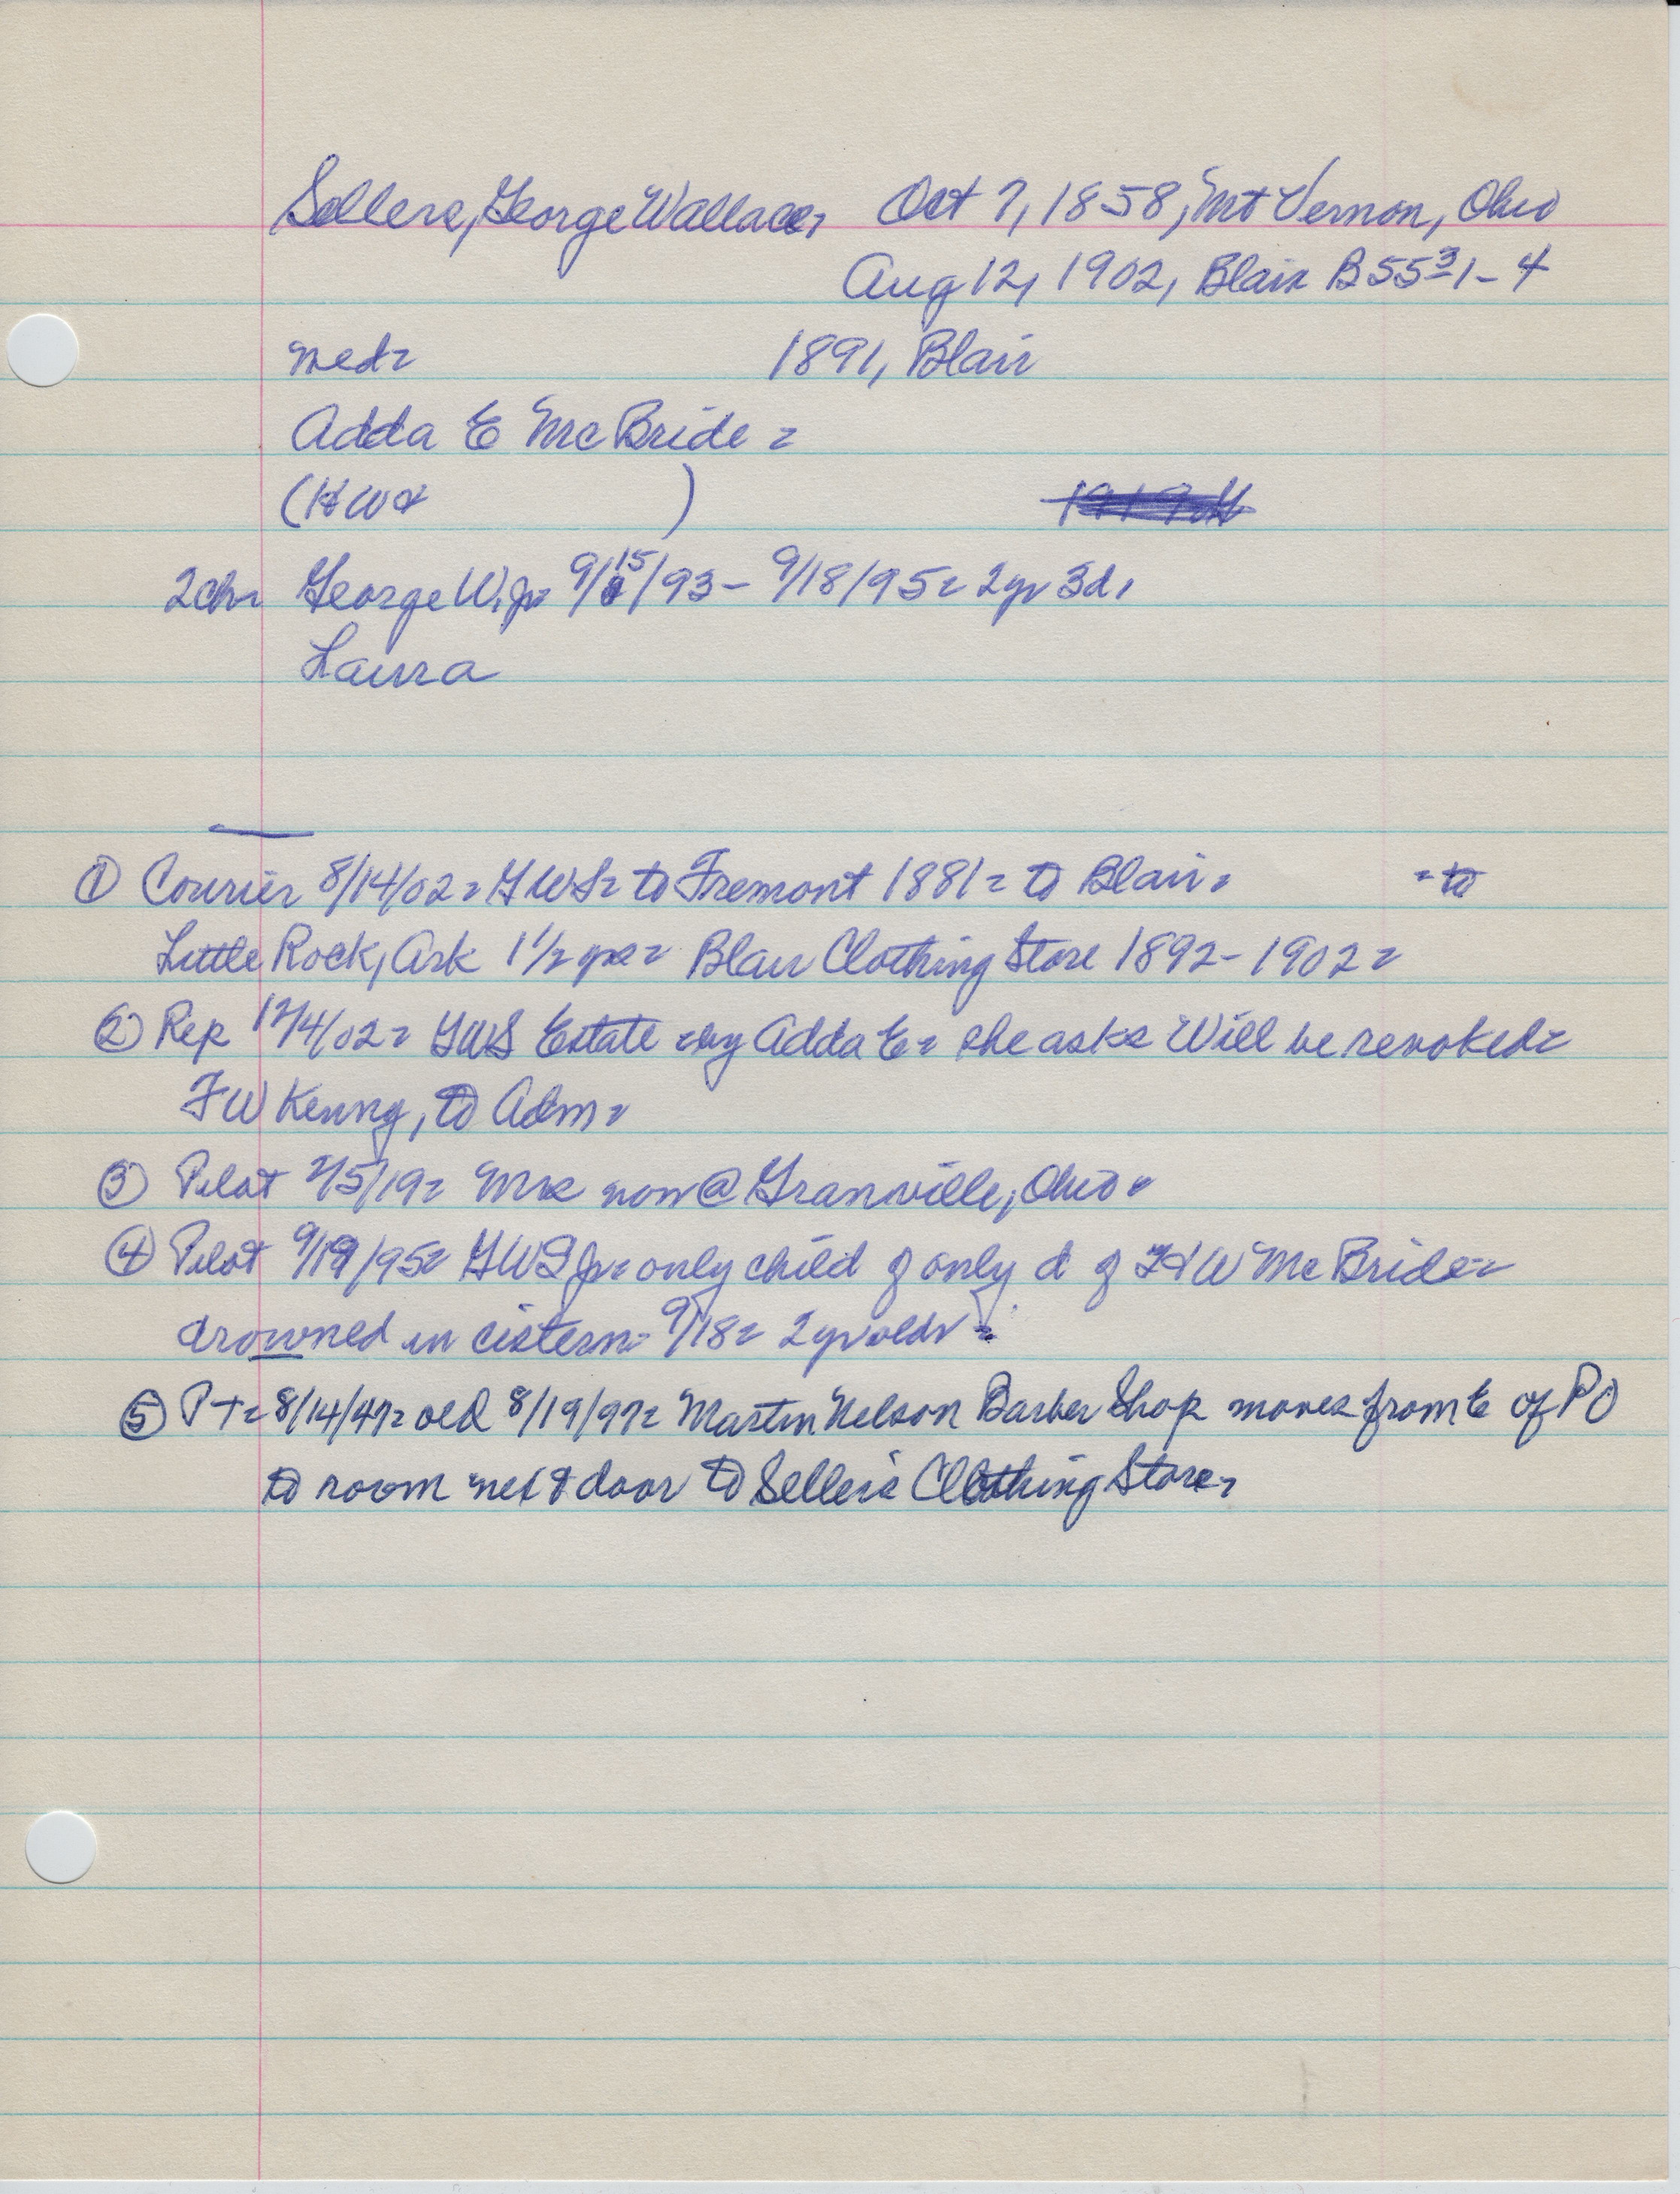 Sellers, George Wallace, Oct 7, 1858, Mt Vernon, Ohio
Aug 12, 1902, Blair B 55 3/1-4
med= 1891, Blair
Adda E McBride =
(HW& )
2 ch= George W. Jr= 9/15/93 - 9/18/95= 2yr 3d,
Laura
① Courier 8/14/02= GWS= to Fremont 1881= to Blair= = to
Little Rock, Ark 1 1/2 yrs= Blair Clothing Store 1892-1902=
② Rep 12/4/02= GWS Estate =by Adda E= she asks Will be revoked=
FW Kenny, to Adm=
③ Pilot 2/5/19= Mrs now @ Granville, Ohio=
④ Pilot 9/19/95= GWS Jr= only child of only d of HW McBride=
drowned in cistern= 9/18= 2 yr old= =
⑤ P+= 8/14/47= old 8/19/97= Martin Nelson Barber Shop moves from E of PO
to room next door to Sellers Clothing Store,